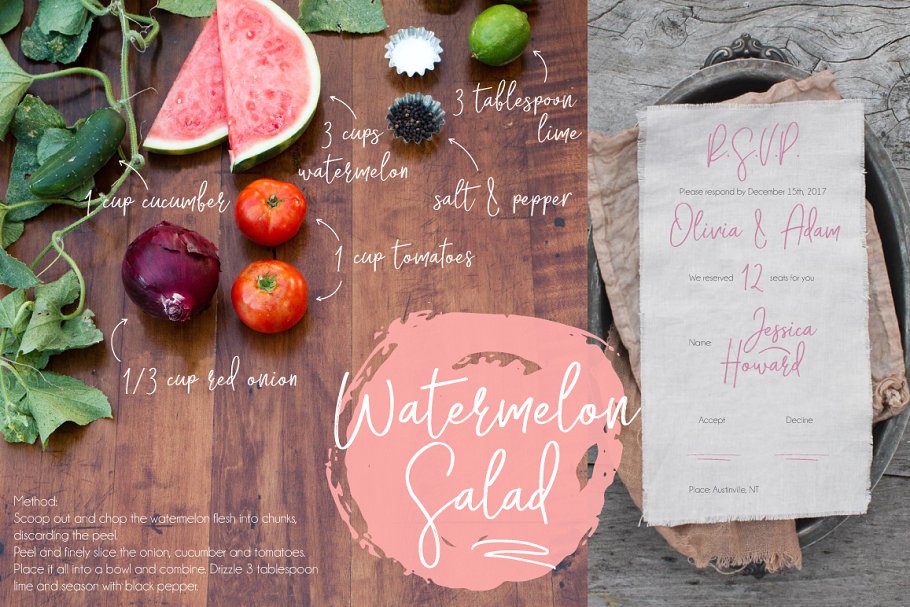 3 tablespoon
lime
3 cups
watermelon
salt & pepper
1 cup cucumber
1 cup tomatoes
1/3 cup red onion
Watermelon
Salad
Method:
Scoop out and chop the watermelon flesh into chunks,
discarding the peel.
Peel and finely slice the onion, cucumber and tomatoes.
Place it all into a bowl and combine. Drizzle 3 tablespoon
lime and season with black pepper.
R.S.V.P.
Please respond by December 15th, 2017
Olivia & Adam
We reserved 12 seats for you
Name: Jessica
Howard
Accept Decline
Place: Austinville, NT